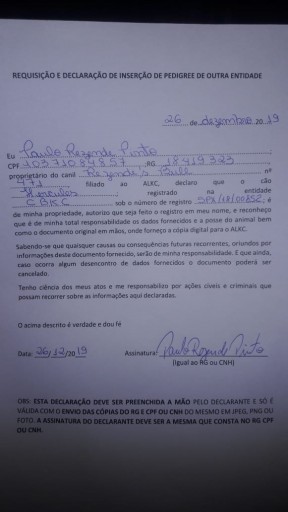 REQUISIÇÃO E DECLARAÇÃO DE INSERÇÃO DE PEDIGREE DE OUTRA ENTIDADE
26 de dezembro 20 19
Eu Paulo Rezende Pinto
CPF 10371084857, RG 18419323
proprietário do canil Rezende's nº
471 filiado ao ALKC, declaro que o cão
Hercules registrado na entidade
CBKC sob o número de registro é
de minha propriedade, autorizo que seja feito o registro em meu nome, e reconheço
que é de minha total responsabilidade os dados fornecidos e a posse do animal bem
como o documento original em mãos, onde forneço a cópia digital para o ALKC.
Sabendo-se que quaisquer causas ou consequências futuras recorrentes, oriundos por
informações deste documento fornecido, serão de minha responsabilidade. E que ainda,
caso ocorra algum desencontro de dados fornecidos o documento poderá ser
cancelado.
Tenho ciência dos meus atos e me responsabilizo por ações cíveis e criminais que
possam recorrer sobre as informações aqui declaradas.
O acima descrito é verdade e dou fé
Data: 26/12/2019 Assinatura: Paulo Rezende Pinto
(Igual ao RG ou CNH)
OBS: ESTA DECLARAÇÃO DEVE SER PREENCHIDA A MÃO PELO DECLARANTE E SÓ É
VÁLIDA COM O ENVIO DAS CÓPIAS DO RG E CPF OU CNH DO MESMO EM JPEG, PNG OU
FOTO. A ASSINATURA DO DECLARANTE DEVE SER A MESMA QUE CONSTA NO RG CPF
OU CNH.